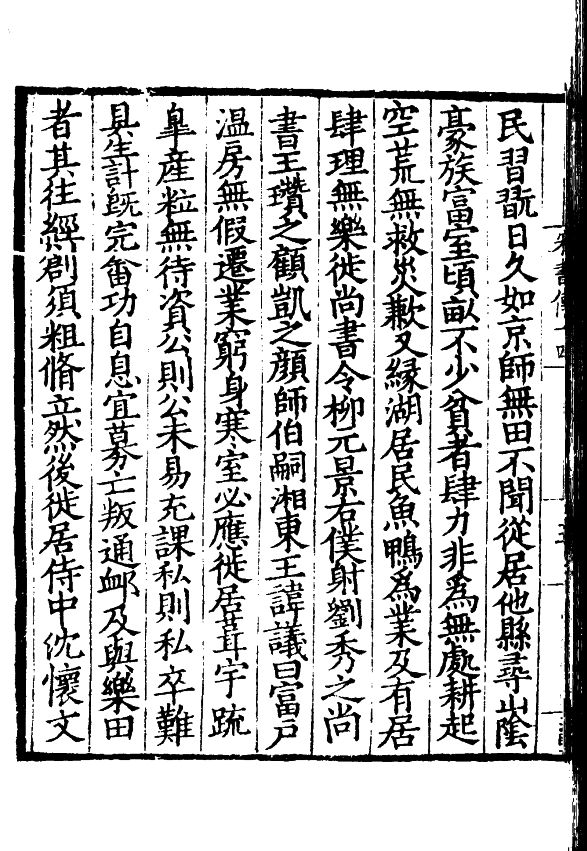 民習翫日久如京師無田不聞從居他縣尋山陰
豪族富室頃畝不少貧者肆力非為無處耕起
空荒無救災歉又緣湖居民魚鴨為業及有居
肆理無樂徙尚書令柳元景右僕射劉秀之尚
書王瓚之顧凱之顏師伯嗣湘東王諱議曰富戶
溫房無假遷業窮身寒室必應徙居葺宇疏
皐產粒無待資公則公未易充課私則私卒難
具生計既完畬功自息宜募亡叛通卹及與樂田
者其往經剏須粗脩立然後徙居侍中沈懷文